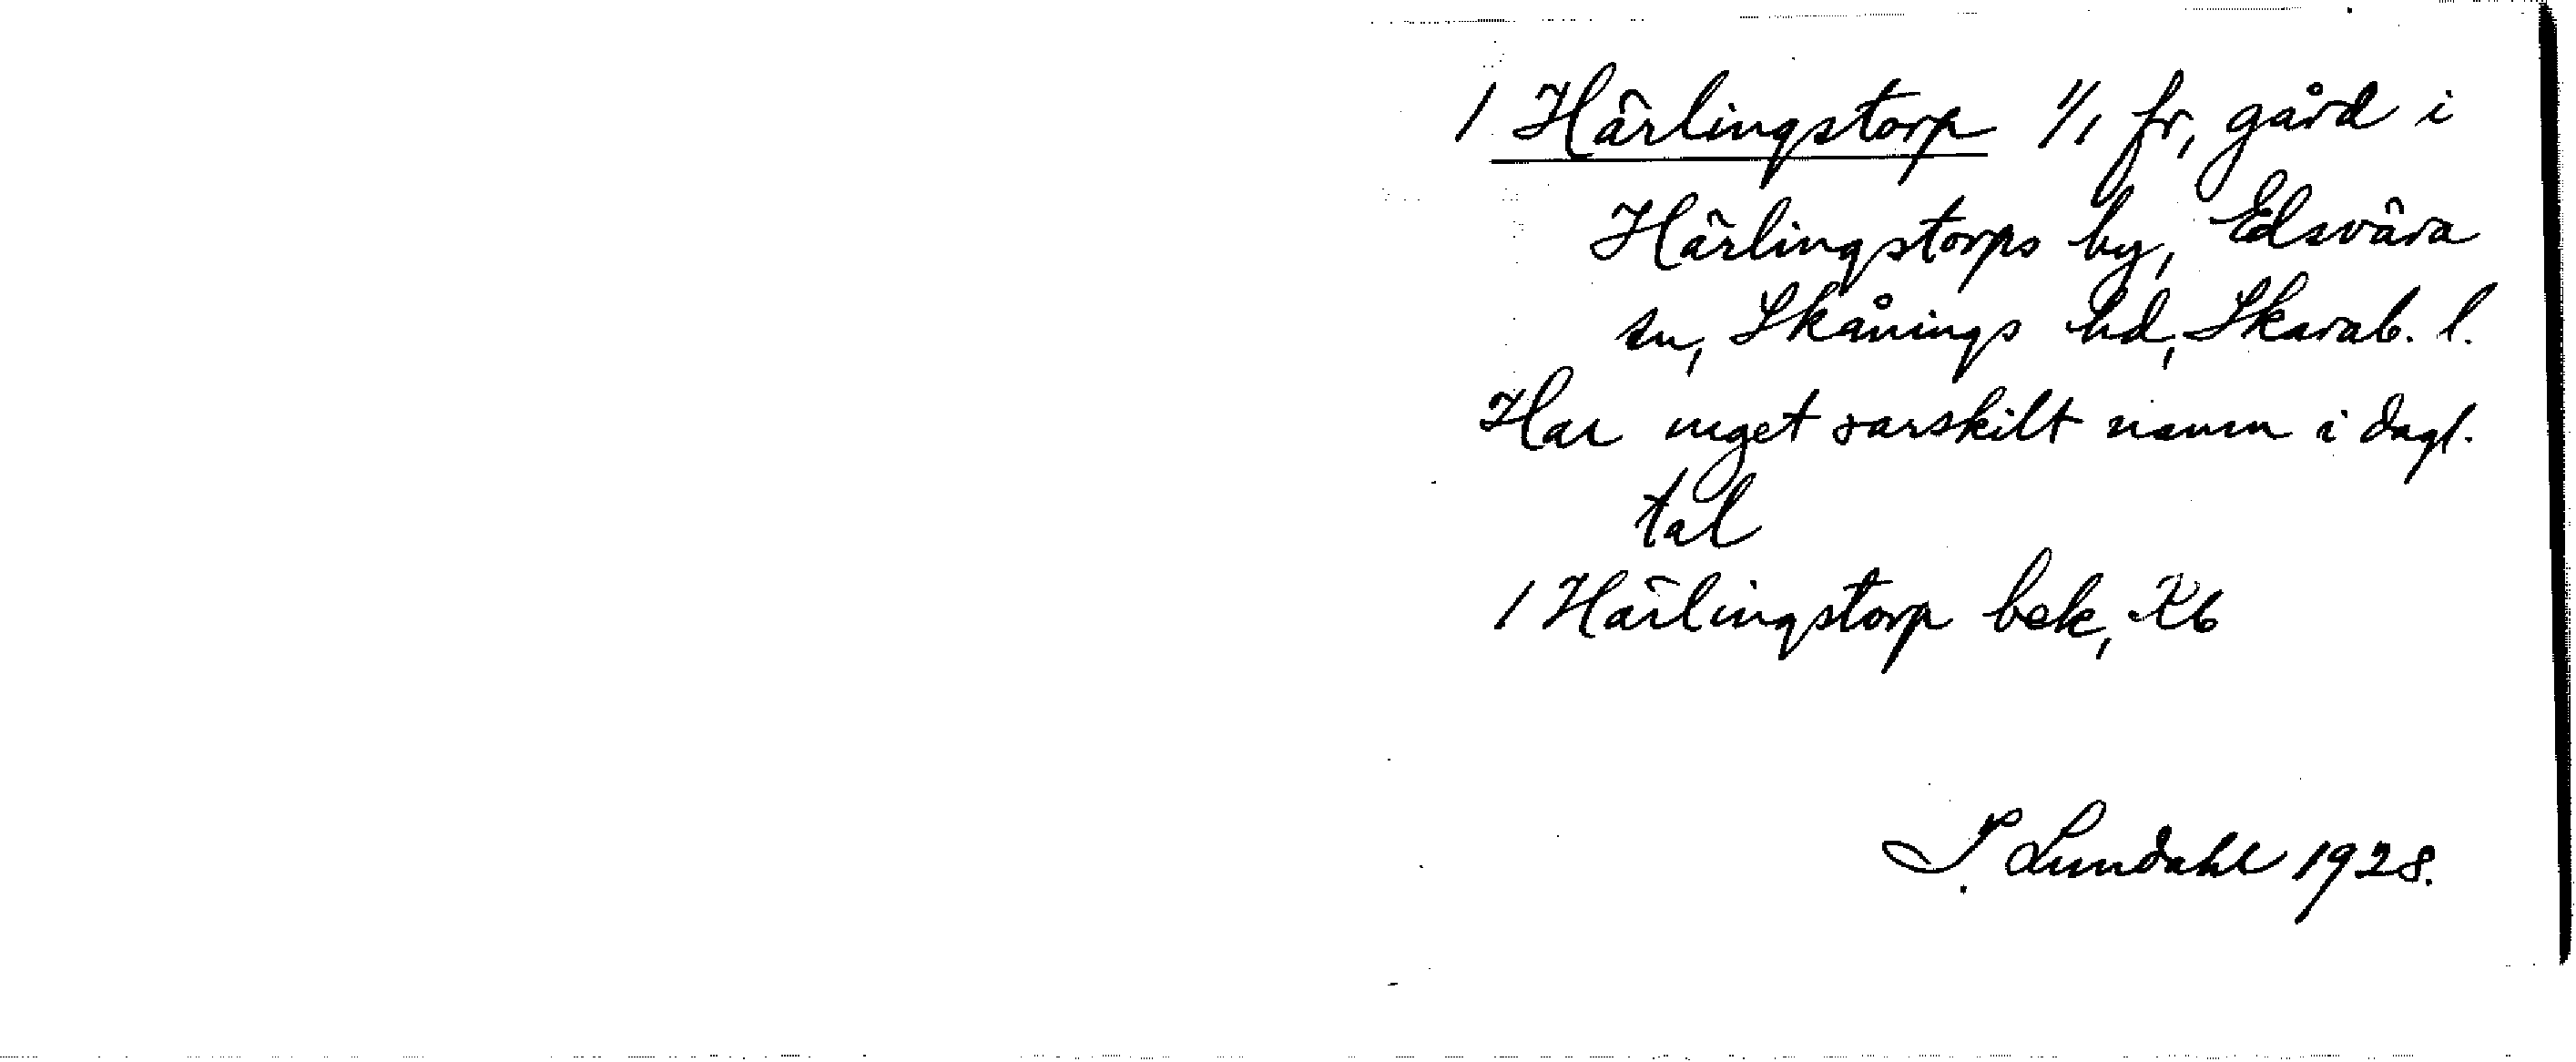 1 Härlingstorp 1/1 fr, gård i
Härlingstorps by, Edsvära
sn, Skånings hd, Skarab. l.
Har inget särskilt namn i dagl.
tal
1 Härlingstorp bek, Kb
I. Lundahl 1928.